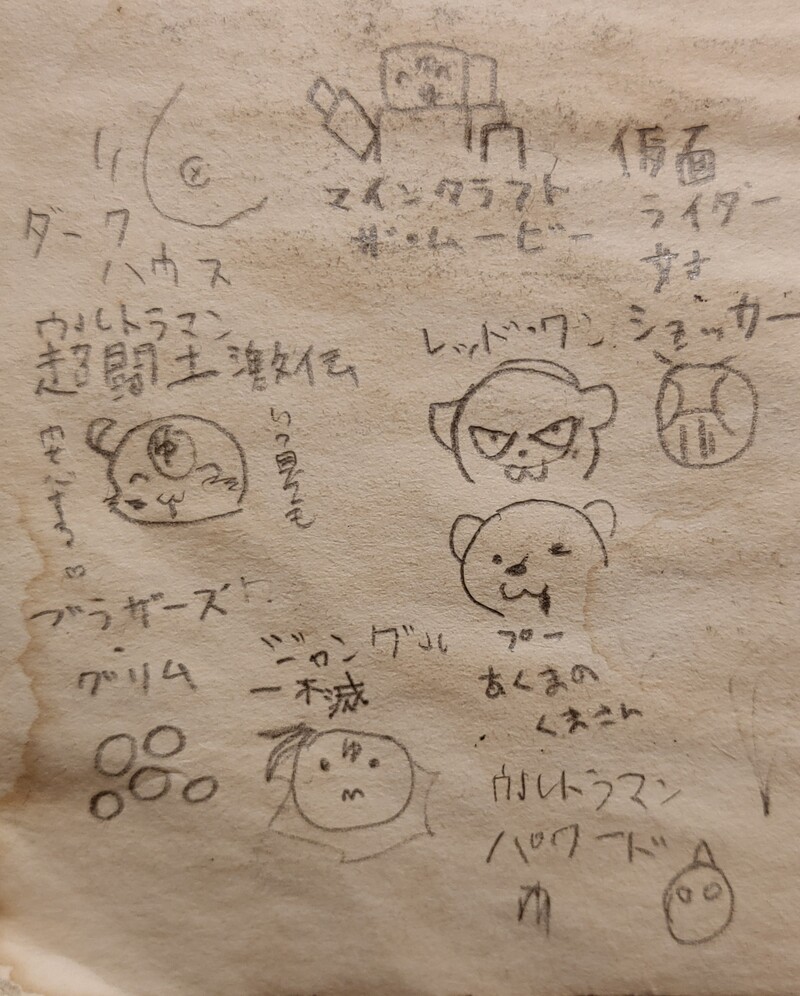 マインクラフト
ザ・ムービー
仮面
ライダー
ショッカー
ダーク
ハウス
ウルトラマン
超闘士激伝
レッド・ワン
ブラザーズ
グリム
ジャングル
不滅
ゆ
プー
あくまの
くまさん
ウルトラマン
パワード